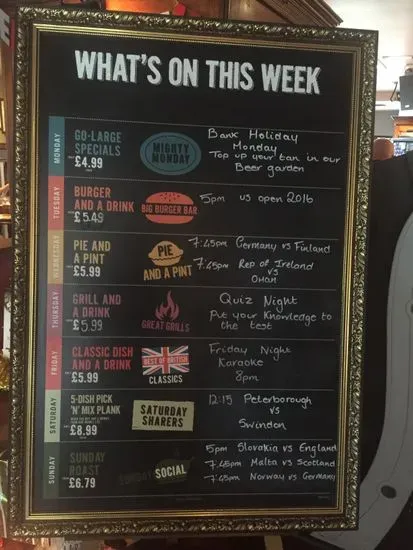 WHAT'S ON THIS WEEK
MONDAY
GO-LARGE
SPECIALS
£4.99
MIGHTY
MONDAY
Bank Holiday
Monday
Top up your tan in our
Beer garden
TUESDAY
BURGER
AND A DRINK
£5.49
BIG BURGER BAR
5pm us open 2016
WEDNESDAY
PIE AND
A PINT
£5.99
PIE
AND A PINT
7:45pm Germany vs Finland
7.45pm Rep of Ireland
vs
Oman
THURSDAY
GRILL AND
A DRINK
£5.99
GREAT GRILLS
Quiz Night
Put your knowledge to
the test
FRIDAY
CLASSIC DISH
AND A DRINK
£5.99
BEST OF BRITISH
CLASSICS
Friday Night
Karaoke
8pm
SATURDAY
5-DISH PICK
'N' MIX PLANK
£8.99
SATURDAY
SHARERS
12:15 Peterborough
vs
Swindon
SUNDAY
SUNDAY
ROAST
£6.79
SUNDAY SOCIAL
5pm Slovakia vs England
7.45pm Malta vs Scotland
7:45pm Norway vs Germany